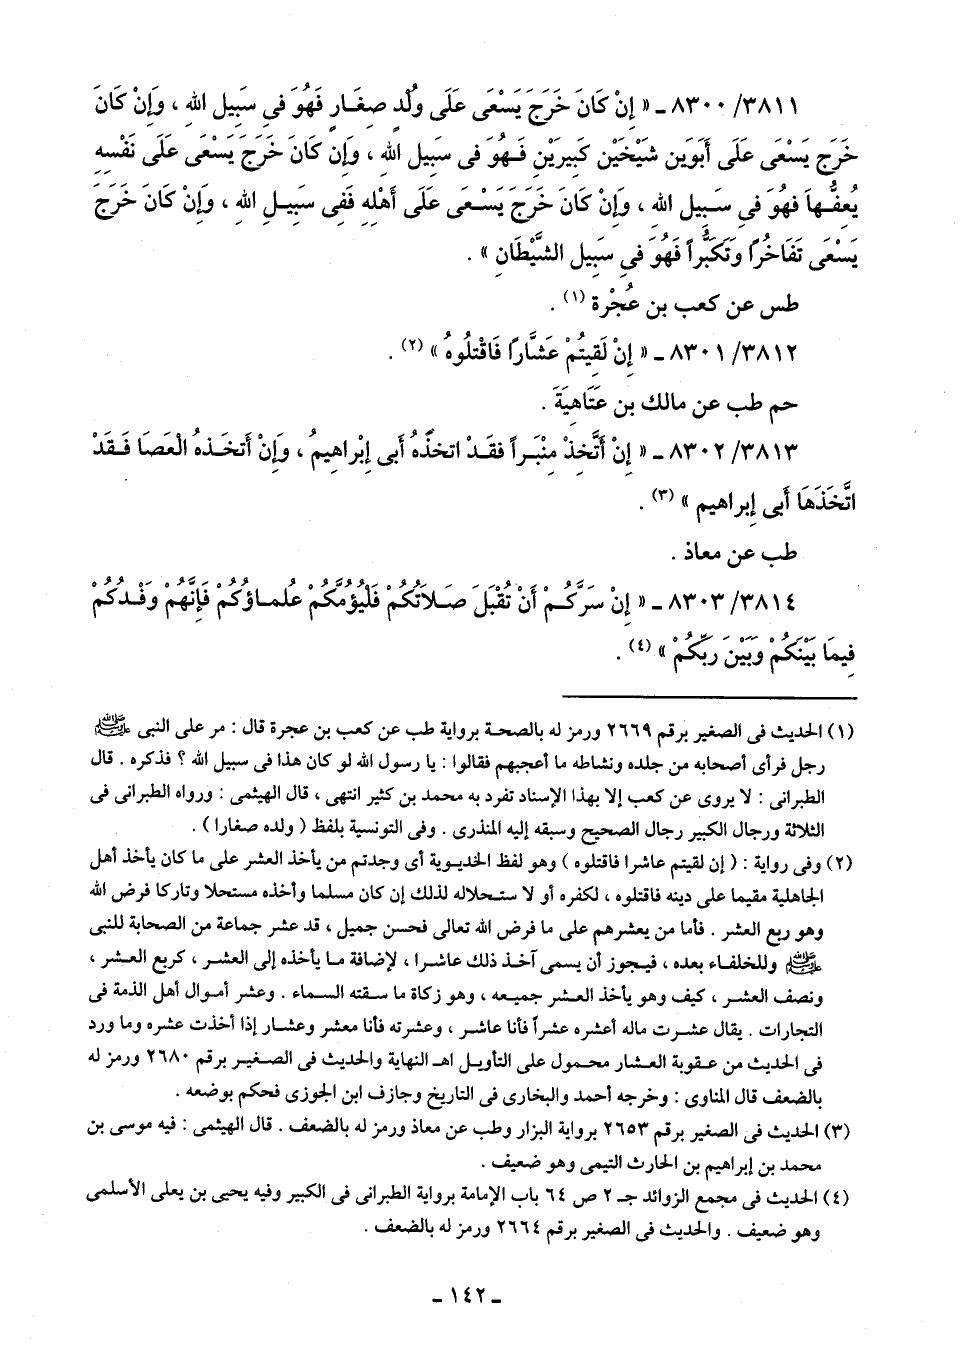 ٨٣٠٠/٣٨١١ ـ « إِنْ كَانَ خَرَجَ يَسْعَى عَلَى وُلْدٍ صِغَارٍ فَهُوَ فِي سَبِيلِ اللهِ ، وَإِنْ كَانَ
خَرَجَ يَسْعَى عَلَى أَبَوَينِ شَيْخَيْنِ كَبِيرَيْنِ فَهُوَ فى سَبِيلِ اللهِ ، وَإِن كَانَ خَرَجَ يَسْعَى عَلَى نَفْسِهِ
يُعِفُّهاَ فَهُوَ فِي سَبِيلِ الله ، وَإِنْ كَانَ خَرَجَ يَسْعَى عَلَى أَهْلِهِ فَفِى سَبِيلِ الله ، وَإِنْ كَانَ خَرَجَ
يَسْعَى تَفَاخُرًا وَتَكَبُّراً فَهُوَ فِي سَبِيلِ الشَّيْطَانِ » .
طس عن كعب بن عُجْرة (١) .
٨٣٠١/٣٨١٢ ـ « إِنْ لَقِيتُمْ عَشَّارًا فَاقْتلُوهُ » (٢) .
حم طب عن مالك بن عَتَاهِيَةَ .
٨٣٠٢/٣٨١٣ ـ « إِنْ أَتَّخِذْ مِنْبَراً فقَدْ اتخذَهُ أَبِى إِبْراهِيمُ ، وَإِنْ أَتخَذهُ الْعَصَا فَقَدْ
اتَّخَذَهَا أَبى إبراهيم » (٣) .
طب عن معاذ .
٨٣٠٣/٣٨١٤ ـ « إِنْ سَرَّكُمْ أَنْ تُقْبَلَ صَلَاتُكُمْ فَلْيُؤَمَّكُمْ عُلماؤُكُمْ فَإِنَّهُمْ وَفْدُكُمْ
فِيمَا بَيْنَكُمْ وَبَيْنَ رَبِّكُمْ » (٤) .
(١) الحديث فى الصغير برقم ٢٦٦٩ ورمز له بالصحة برواية طب عن كعب بن عجرة قال : مر على النبى ﷺ
رجل فرأى أصحابه من جلده ونشاطه ما أعجبهم فقالوا : يا رسول الله لو كان هذا فى سبيل الله ؟ فذكره . قال
الطبرانى : لا يروى عن كعب إلا بهذا الإسناد تفرد به محمد بن كثير انتهى ، قال الهيثمى : ورواه الطبرانى فى
الثلاثة ورجال الكبير رجال الصحيح وسبقه إليه المنذرى . وفى التونسية بلفظ ( ولده صغارا ) .
(٢) وفى رواية : ( إن لقيتم عاشرا فاقتلوه ) وهو لفظ الخديوية أى وجدتم من يأخذ العشر على ما كان يأخذ أهل
الجاهلية مقيما على دينه فاقتلوه ، لكفره أو لا ستحلاله لذلك إن كان مسلما وأخذه مستحلا وتاركا فرض الله
وهو ربع العشر . فأما من يعشرهم على ما فرض الله تعالى فحسن جميل ، قد عشر جماعة من الصحابة للنبى
ﷺ وللخلفاء بعده ، فيجوز أن يسمى آخذ ذلك عاشرا ، لإضافة ما يأخذه إلى العشر ، كربع العشر ،
ونصف العشر ، كيف وهو يأخذ العشر جميعه ، وهو زكاة ما سقته السماء . وعشر أموال أهل الذمة فى
التجارات . يقال عشرت ماله أعشره عشراً فأنا عاشر ، وعشرته فأنا معشر وعشار إذا أخذت عشره وما ورد
فى الحديث من عقوبة العشار محمول على التأويل اهـ النهاية والحديث فى الصغير برقم ٢٦٨٠ ورمز له
بالضعف قال المناوى : وخرجه أحمد والبخارى فى التاريخ وجازف ابن الجوزى فحكم بوضعه .
(٣) الحديث فى الصغير برقم ٢٦٥٣ برواية البزار وطب عن معاذ ورمز له بالضعف . قال الهيثمى : فيه موسى بن
محمد بن إبراهيم بن الحارث التيمى وهو ضعيف .
(٤) الحديث فى مجمع الزوائد جـ ٢ ص ٦٤ باب الإمامة برواية الطبرانى فى الكبير وفيه يحيى بن يعلى الأسلمى
وهو ضعيف . والحديث فى الصغير برقم ٢٦٦٤ ورمز له بالضعف .
ـ ١٤٢ ـ